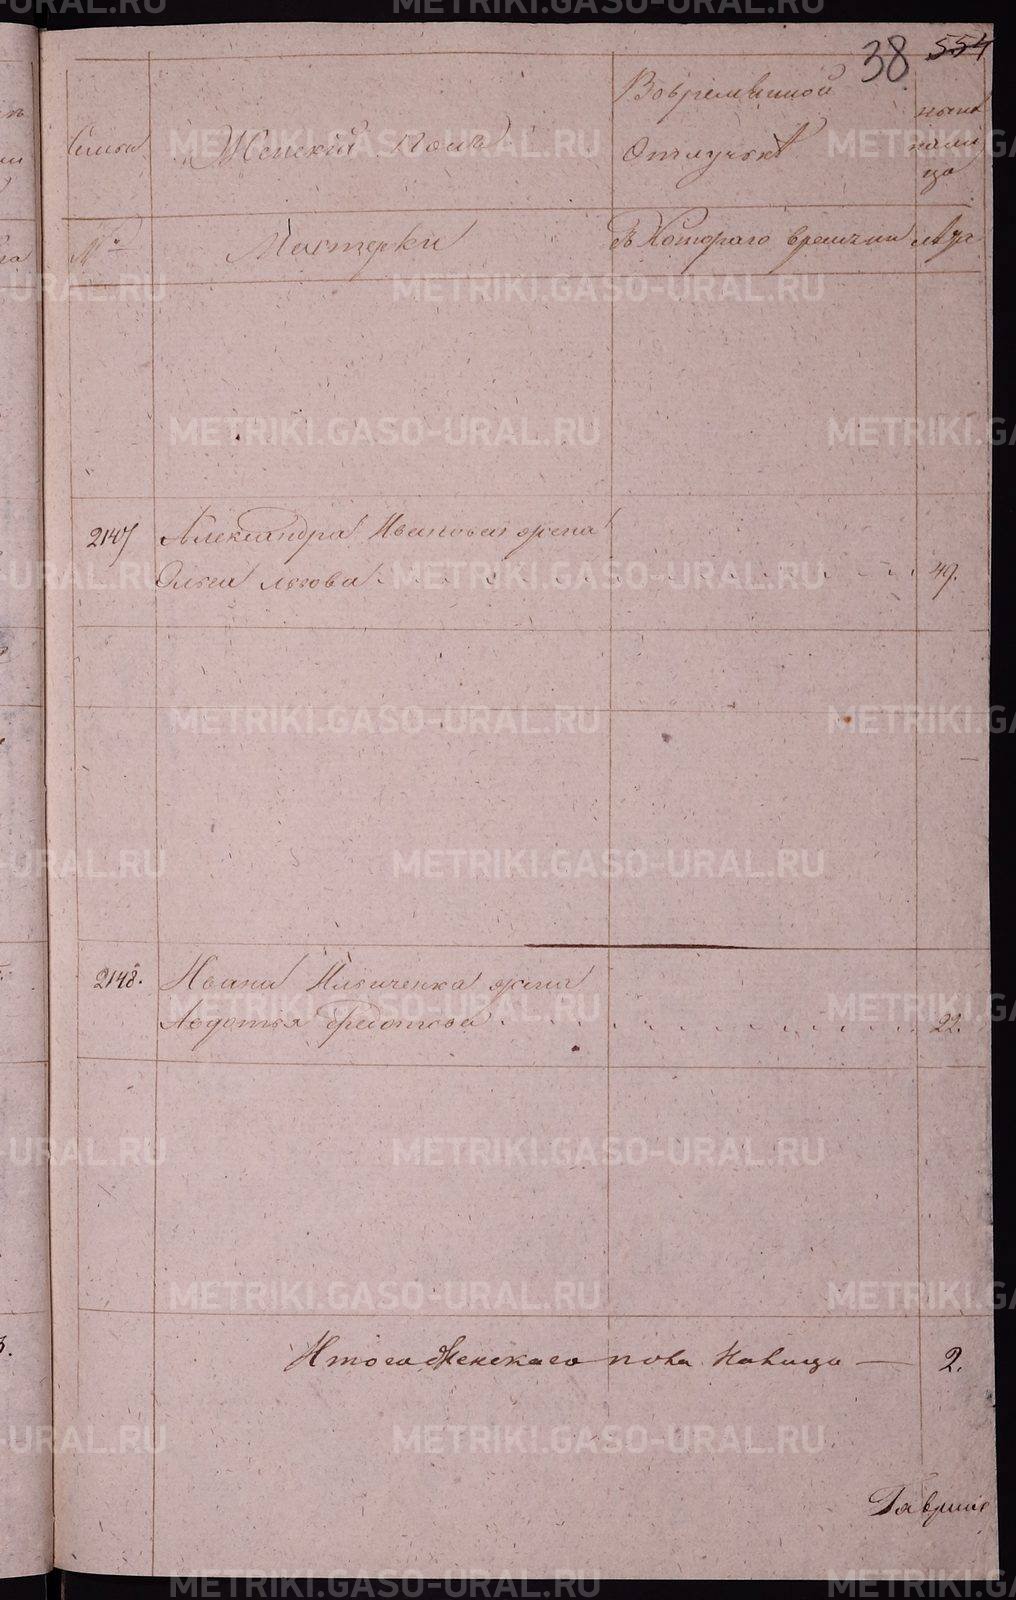 38 554
Семьи
Женскій полъ
Вовременной
Отлучкѣ
ныне
нали
цо
№
Мастерки
Съ Котораго времени
лѣта
2147 Александра Иванова жена
Ольга 49.
2148. Ивана Ильиченка жена
Авдотья Федотова 22.
Итого Женскаго пола Налицо — 2.
METRIKI.GASO-URAL.RU